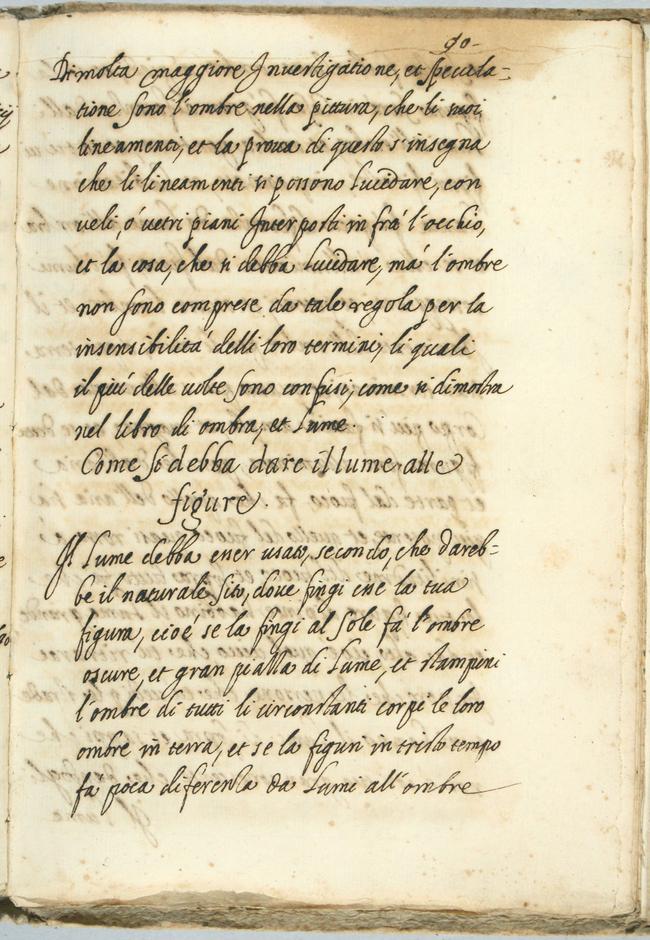 90
Di molta maggiore Investigatione, et specula-
tione sono l'ombre nella pittura, che li suoi
lineamenti, et la prova di questo s'insegna
che li lineamenti si possono Lucidare, con
veli, ò vetri piani Interposti in frà l'occhio,
et la cosa, che si debba Lucidare, mà l'ombre
non sono comprese da tale regola per la
insensibilità delli loro termini, li quali
il più delle volte sono confusi, come si dimostra
nel libro di ombra, et Lume.
Come si debba dare il lume alle
figure.
Il Lume debba esser usato, secondo, che dareb-
be il naturale sito, dove fingi esse la tua
figura, cioè se la fingi al sole fà l'ombre
oscure, et gran piazza di Lume, et stampini
l'ombre di tutti li circonstanti corpi le loro
ombre in terra, et se la figuri in tristo tempo
fà poca diferenza da Lumi all'ombre